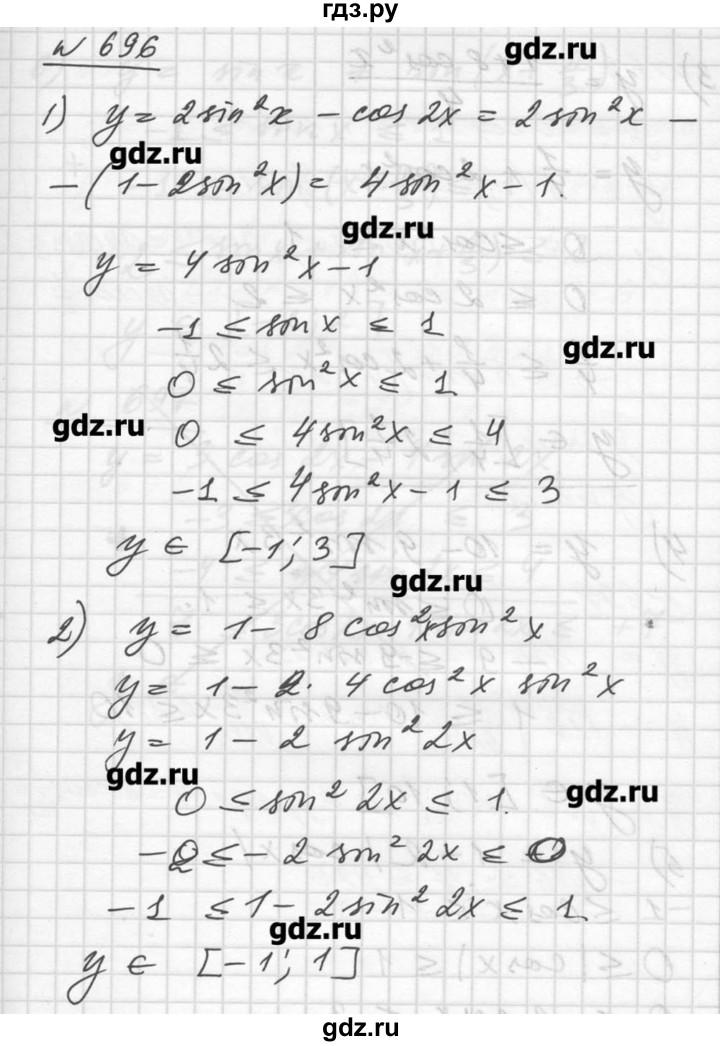 гдз.ру
№ 696
gdz.ru
1) y = 2 sin²x - cos 2x = 2 sin²x -
gdz.ru
- (1 - 2 sin²x) = 4 sin²x - 1.
gdz.ru
y = 4 sin²x - 1
-1 ≤ sin x ≤ 1
gdz.ru
0 ≤ sin²x ≤ 1
gdz.ru
0 ≤ 4 sin²x ≤ 4
-1 ≤ 4 sin²x - 1 ≤ 3
y ∈ [-1; 3]
gdz.ru
2) y = 1 - 8 cos²x sin²x
y = 1 - 2 · 4 cos²x sin²x
y = 1 - 2 sin²2x
gdz.ru
gdz.ru
0 ≤ sin²2x ≤ 1.
-2 ≤ -2 sin²2x ≤ 0
-1 ≤ 1 - 2 sin²2x ≤ 1.
gdz.ru
y ∈ [-1; 1]
gdz.ru